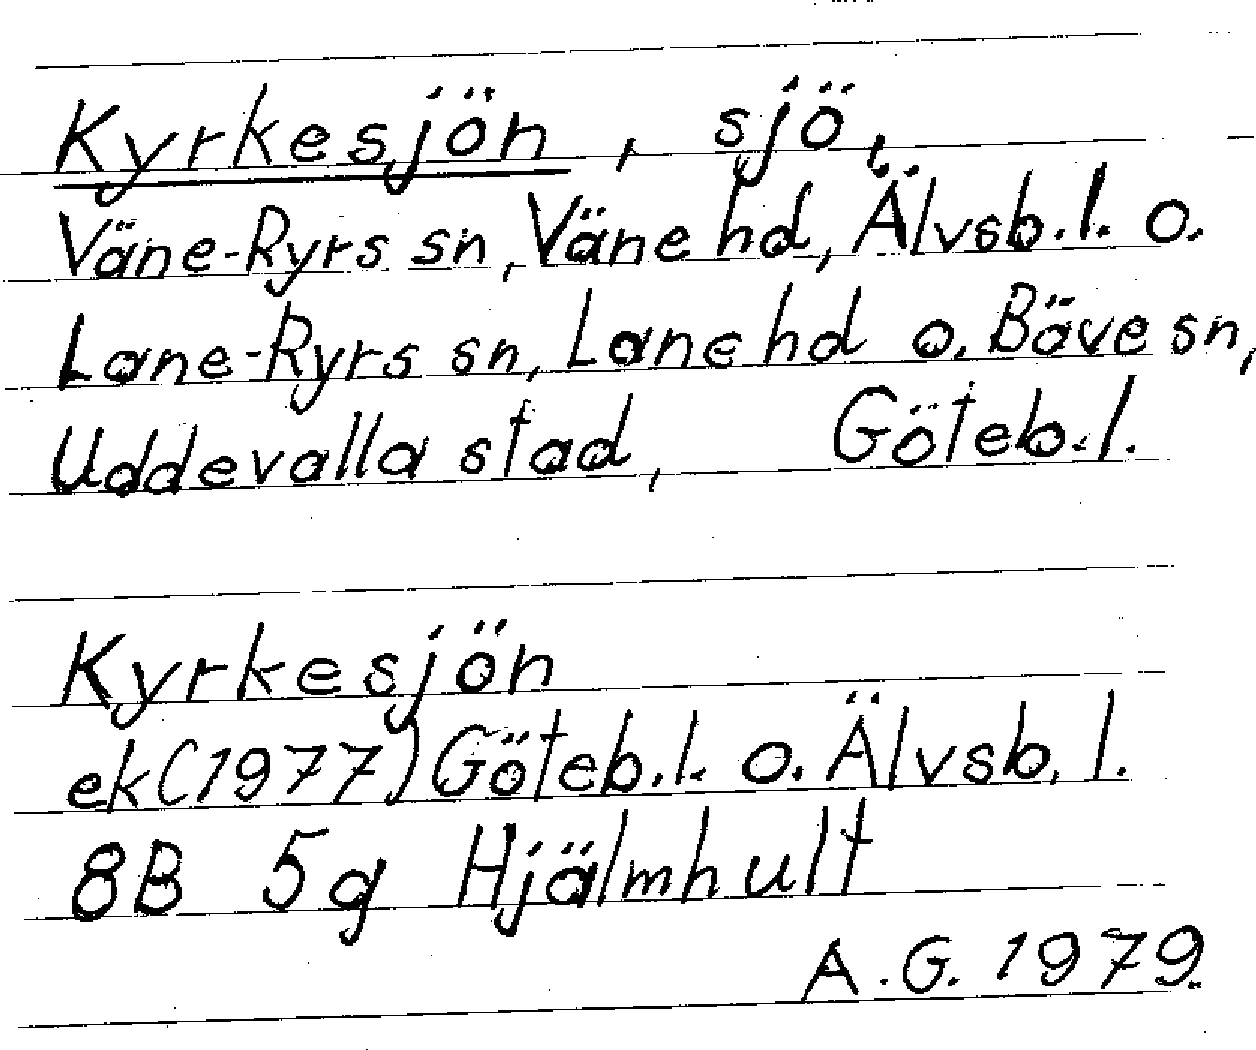 Kyrkesjön, sjö,
Väne-Ryrs sn, Väne hd, Älvsb.l. o.
Lane-Ryrs sn, Lane hd o. Bäve sn,
Uddevalla stad, Göteb.l.
Kyrkesjön
ek (1977) Göteb.l. o. Älvsb. l.
8B 5g Hjälmhult
A.G. 1979.